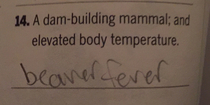 14. A dam-building mammal; and
elevated body temperature.
beaver fever